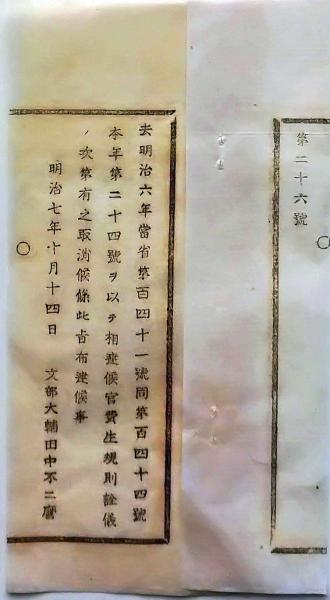 第二十六號
去明治六年當省第百四十一號同第百四十四號
本年第二十四號ヲ以テ相達候官費生規則詮儀
ノ次第有之取消候條此旨布達候事
明治七年十月十四日　文部大輔田中不二麿